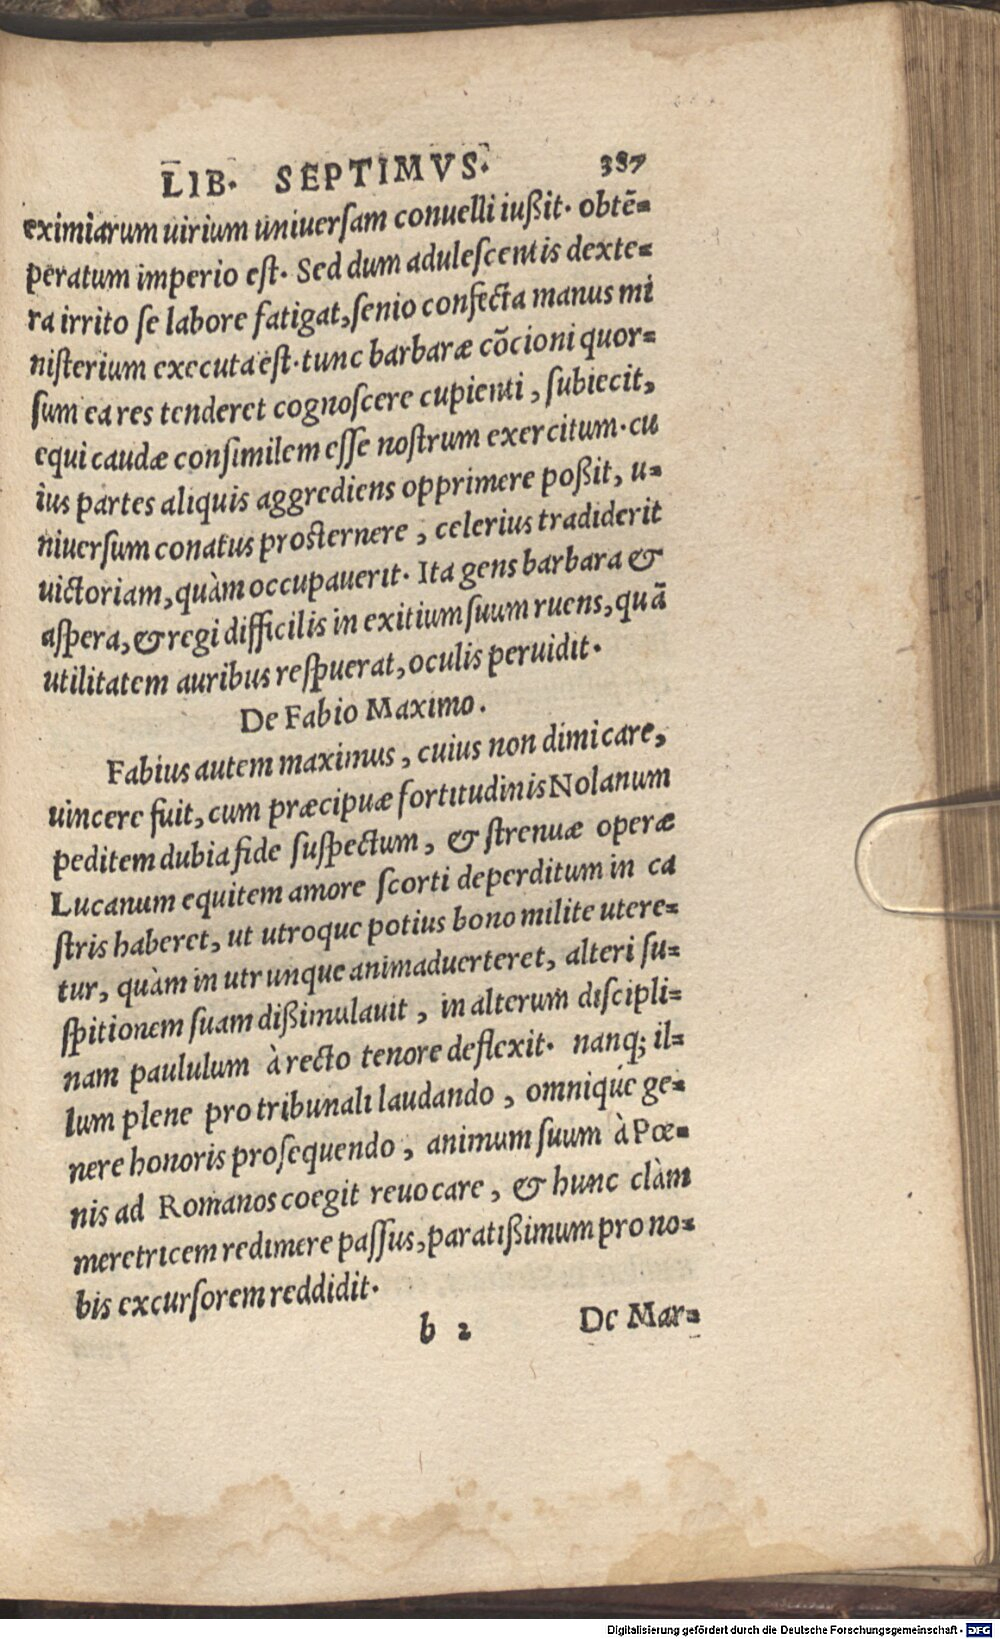 LIB. SEPTIMVS. 387
eximiarum uirium uniuersam conuelli iußit. obtē=
peratum imperio est. Sed dum adulescentis dexte=
ra irrito se labore fatigat, senio confecta manus mi
nisterium executa est. tunc barbaræ cōcioni quor=
sum ea res tenderet cognoscere cupienti, subiecit,
equi caudæ consimilem esse nostrum exercitum. cu
ius partes aliquis aggrediens opprimere poßit, u=
niuersum conatus prosternere, celerius tradiderit
uictoriam, quàm occupauerit. Ita gens barbara &
aspera, & regi difficilis in exitium suum ruens, quā
utilitatem auribus respuerat, oculis peruidit.
De Fabio Maximo.
Fabius autem maximus, cuius non dimicare,
uincere fuit, cum præcipuæ fortitudinis Nolanum
peditem dubia fide suspectum, & strenuæ operæ
Lucanum equitem amore scorti deperditum in ca
stris haberet, ut utroque potius bono milite utere=
tur, quàm in utrunque animaduerteret, alteri su=
spitionem suam dißimulauit, in alterum discipli=
nam paululum à recto tenore deflexit. nanq; il=
lum plene pro tribunali laudando, omniq́ue ge=
nere honoris prosequendo, animum suum à Pœ=
nis ad Romanos coegit reuocare, & hunc clàm
meretricem redimere passus, paratißimum pro no=
bis excursorem reddidit.
b 2 De Mar=
Digitalisierung gefördert durch die Deutsche Forschungsgemeinschaft - DFG